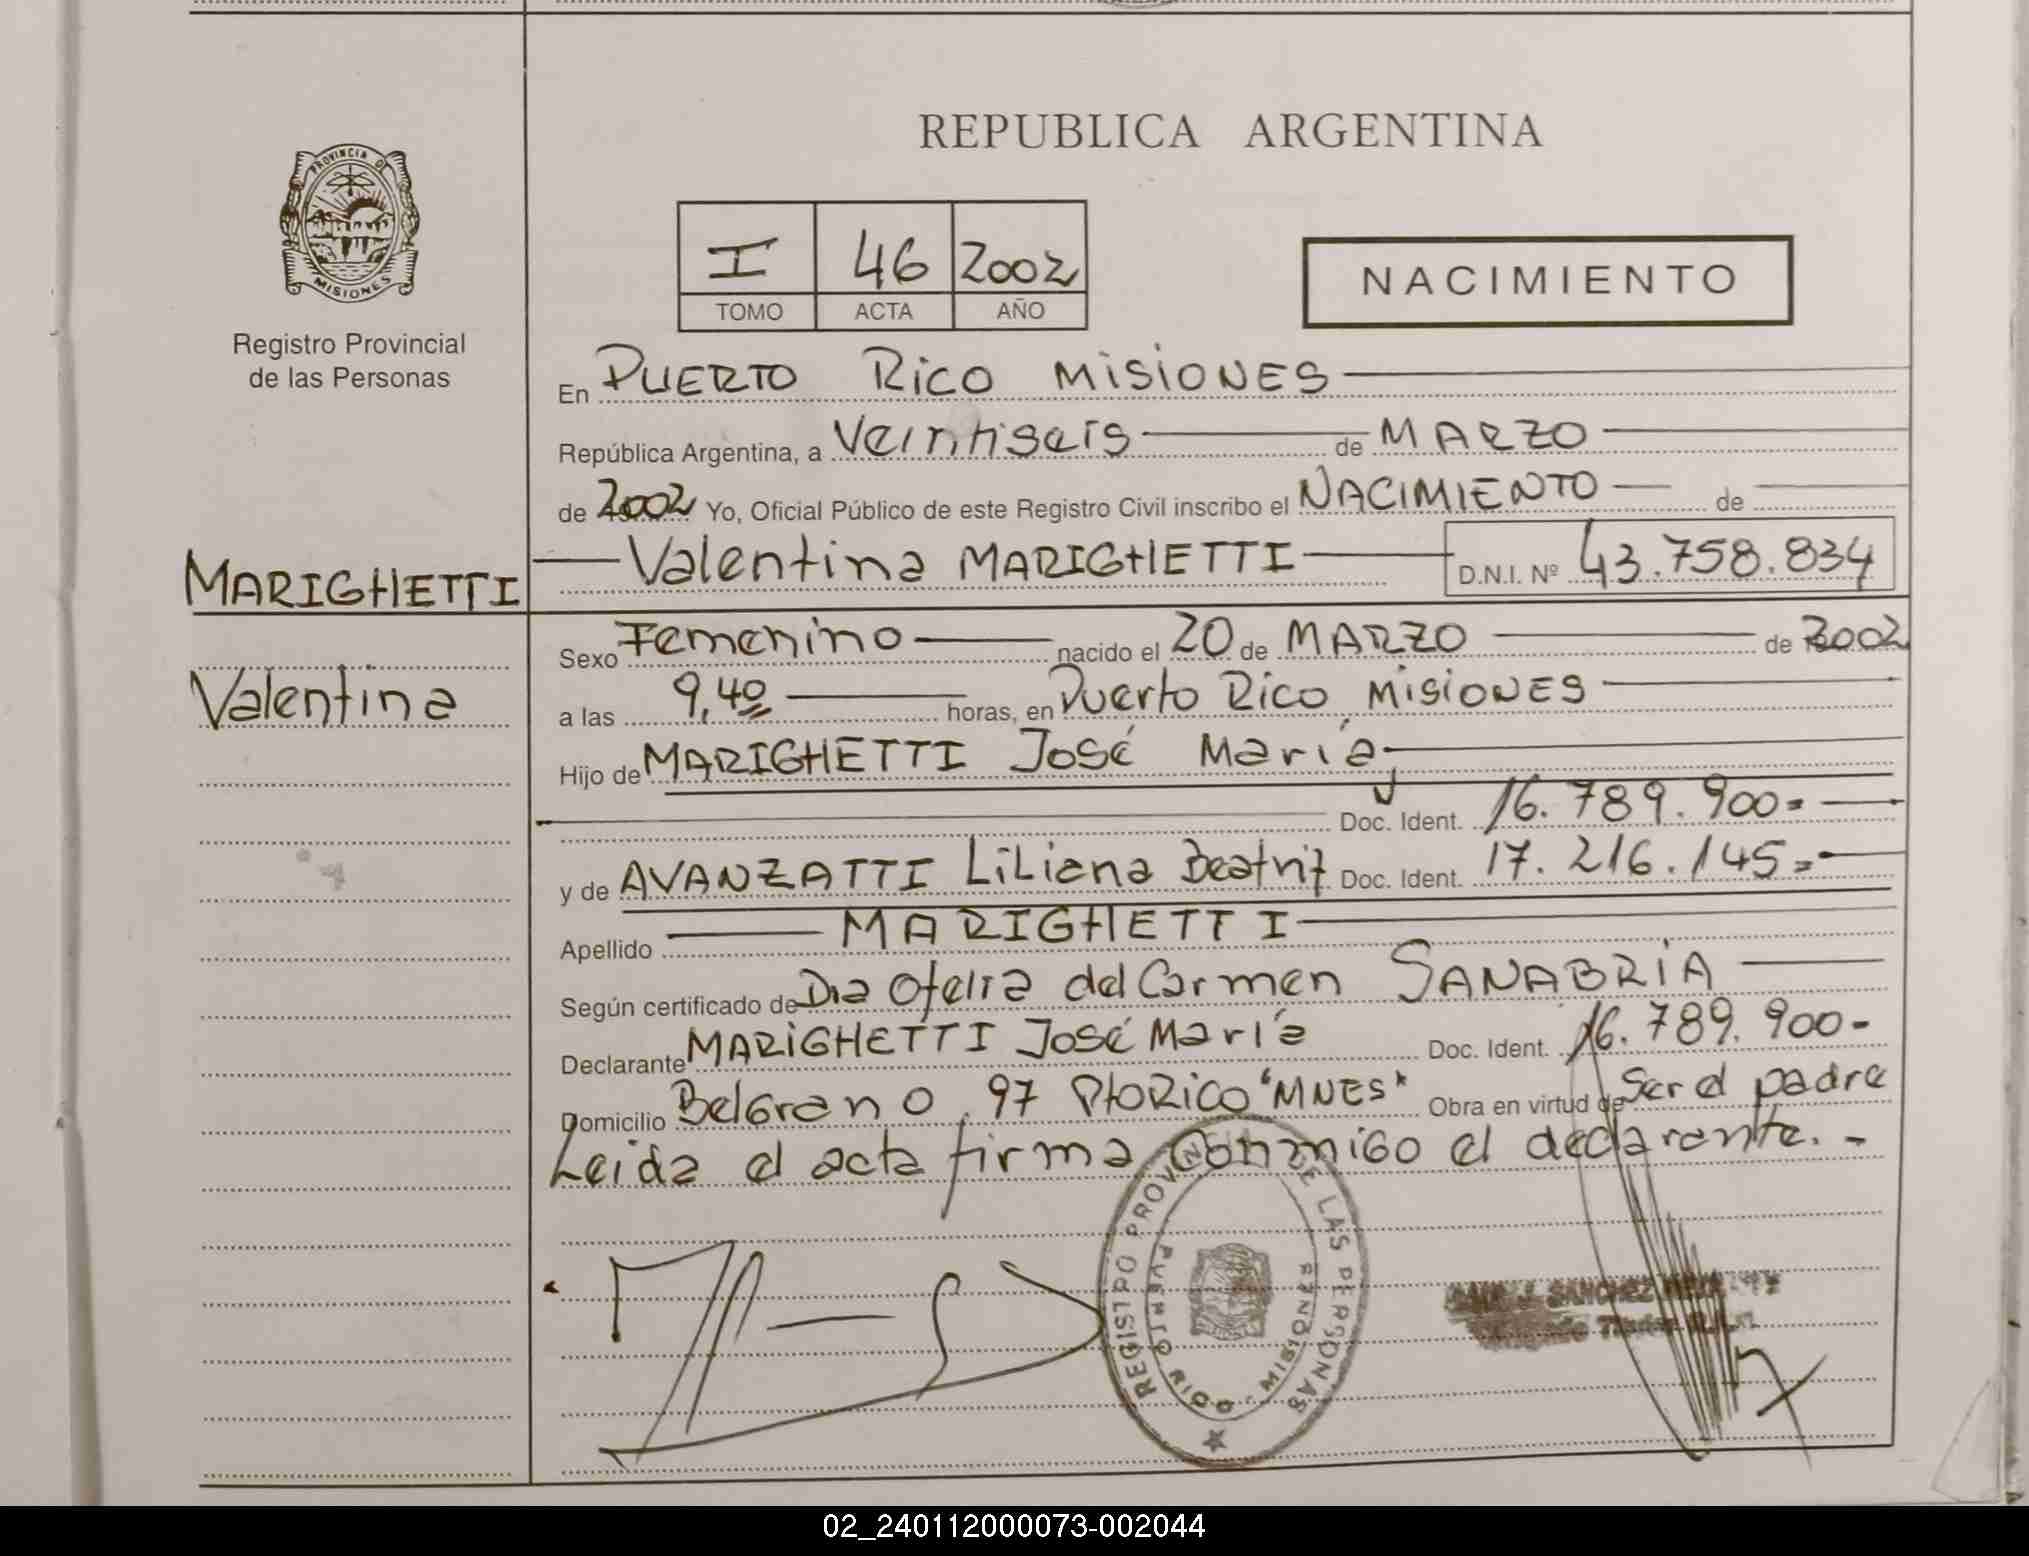 REPUBLICA ARGENTINA
PROVINCIA DE
MISIONES
Registro Provincial
de las Personas
I 46 2002
TOMO ACTA AÑO
NACIMIENTO
En PUERTO RICO MISIONES
República Argentina, a Veintiseis de MARZO
de 2002 Yo, Oficial Público de este Registro Civil inscribo el NACIMIENTO de
MARIGHETTI
Valentina MARIGHETTI D.N.I. Nº 43.758.834
Valentina
Sexo Femenino nacido el 20 de MARZO de 2002
a las 9,40 horas, en Puerto Rico, MISIONES
Hijo de MARIGHETTI José María
Doc. Ident. 16.789.900=
y de AVANZATTI Liliana Beatriz Doc. Ident. 17.216.145=
Apellido MARIGHETTI
Según certificado de Dra Ofelia del Carmen SANABRIA
Declarante MARIGHETTI José María Doc. Ident. 16.789.900-
Domicilio Belgrano, 97 Pto RICO "MNES" Obra en virtud de Ser el padre
Leida el acta firma Conmigo el declarante.-
REGISTRO DE LAS PERSONAS
PUERTO RICO - MISIONES
SANCHEZ
02_240112000073-002044